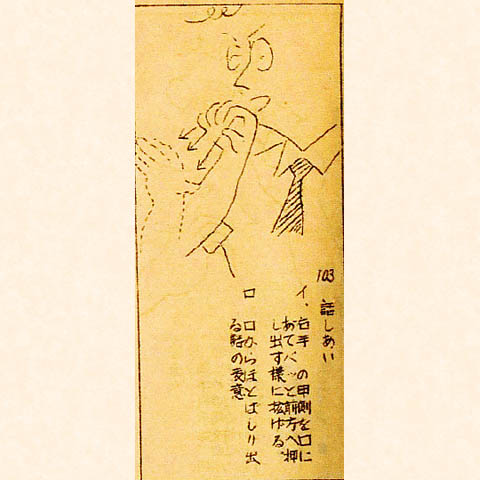 103 話しあい
イ、右手の甲側を口に
あてパッと前方へ押
し出す様に拡げる。
ロ 口からほとばしり出
る話の表意